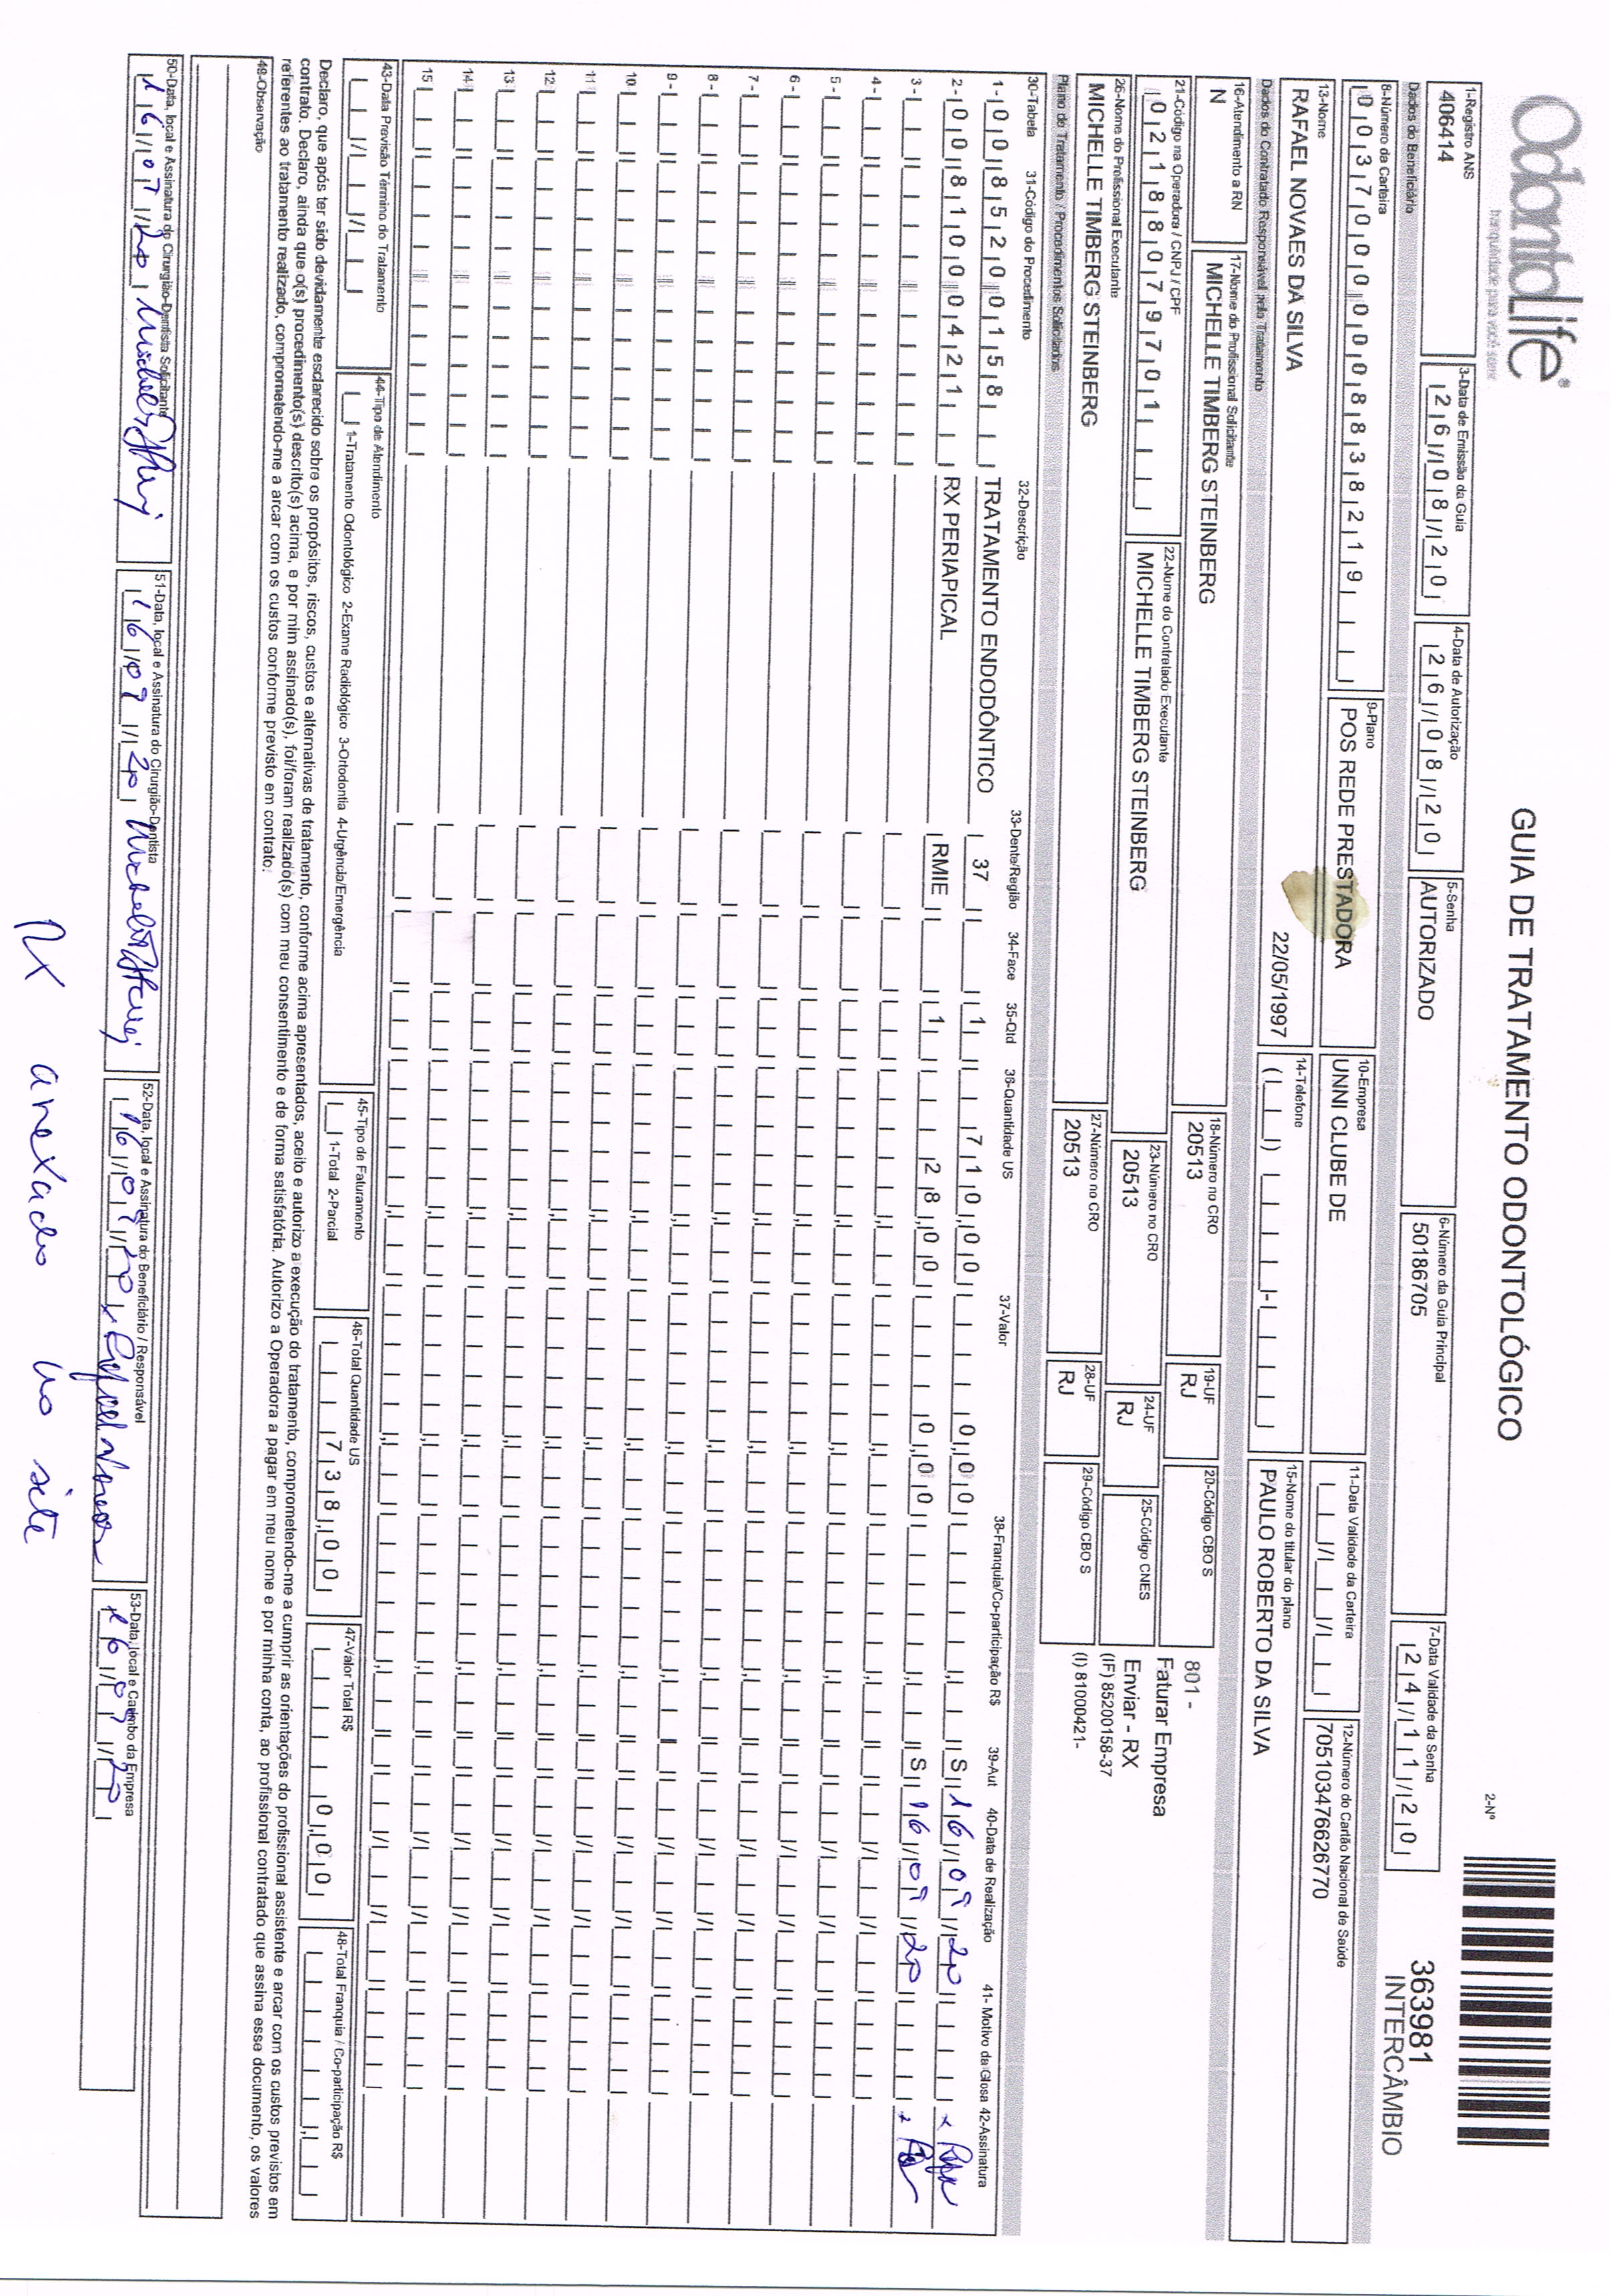 OdontoLife®
tranquilidade para você sorrir
GUIA DE TRATAMENTO ODONTOLÓGICO
2-Nº
363981
INTERCÂMBIO
1-Registro ANS
406414
3-Data de Emissão da Guia
26/08/20
4-Data de Autorização
26/08/20
5-Senha
AUTORIZADO
6-Número da Guia Principal
50186705
7-Data Validade da Senha
24/11/20
Dados do Beneficiário
8-Número da Carteira
00370000008838219
9-Plano
POS REDE PRESTADORA
10-Empresa
UNNI CLUBE DE
11-Data Validade da Carteira
12-Número do Cartão Nacional de Saúde
705103476626770
13-Nome
RAFAEL NOVAES DA SILVA
22/05/1997
14-Telefone
15-Nome do titular do plano
PAULO ROBERTO DA SILVA
Dados do Contratado Responsável pelo Tratamento
16-Atendimento a RN
N
17-Nome do Profissional Solicitante
MICHELLE TIMBERG STEINBERG
18-Número no CRO
20513
19-UF
RJ
20-Código CBO S
801 -
Faturar Empresa
Enviar - RX
(IF) 85200158-37
(I) 81000421-
21-Código na Operadora / CNPJ / CPF
02188079701
22-Nome do Contratado Executante
MICHELLE TIMBERG STEINBERG
23-Número no CRO
20513
24-UF
RJ
25-Código CNES
26-Nome do Profissional Executante
MICHELLE TIMBERG STEINBERG
27-Número no CRO
20513
28-UF
RJ
29-Código CBO S
Plano de Tratamento / Procedimentos Solicitados
30-Tabela 31-Código do Procedimento 32-Descrição 33-Dente/Região 34-Face 35-Qtd 36-Quantidade US 37-Valor 38-Franquia/Co-participação R$ 39-Aut 40-Data de Realização 41- Motivo da Glosa 42-Assinatura
1- 00 85200158 TRATAMENTO ENDODÔNTICO 37 1 710,00 0,00 S 16/09/20 x
2- 00 81000421 RX PERIAPICAL RMIE 1 28,00 0,00 S 16/09/20 x
3-
4-
5-
6-
7-
8-
9-
10
11
12
13
14
15
43-Data Previsão Término do Tratamento
44-Tipo de Atendimento
1-Tratamento Odontológico 2-Exame Radiológico 3-Ortodontia 4-Urgência/Emergência
45-Tipo de Faturamento
1-Total 2-Parcial
46-Total Quantidade US
738,00
47-Valor Total R$
0,00
48-Total Franquia / Co-participação R$
Declaro, que após ter sido devidamente esclarecido sobre os propósitos, riscos, custos e alternativas de tratamento, conforme acima apresentados, aceito e autorizo a execução do tratamento, comprometendo-me a cumprir as orientações do profissional assistente e arcar com os custos previstos em
contrato. Declaro, ainda que o(s) procedimento(s) descrito(s) acima, e por mim assinado(s), foi/foram realizado(s) com meu consentimento e de forma satisfatória. Autorizo a Operadora a pagar em meu nome e por minha conta, ao profissional contratado que assina esse documento, os valores
referentes ao tratamento realizado, comprometendo-me a arcar com os custos conforme previsto em contrato.
49-Observação
50-Data, local e Assinatura do Cirurgião-Dentista Solicitante
16/07/20
51-Data, local e Assinatura do Cirurgião-Dentista
16/09/20
52-Data, local e Assinatura do Beneficiário / Responsável
16/09/20 x Rafael Novaes
53-Data, local e Carimbo da Empresa
16/09/20
RX anexado no site